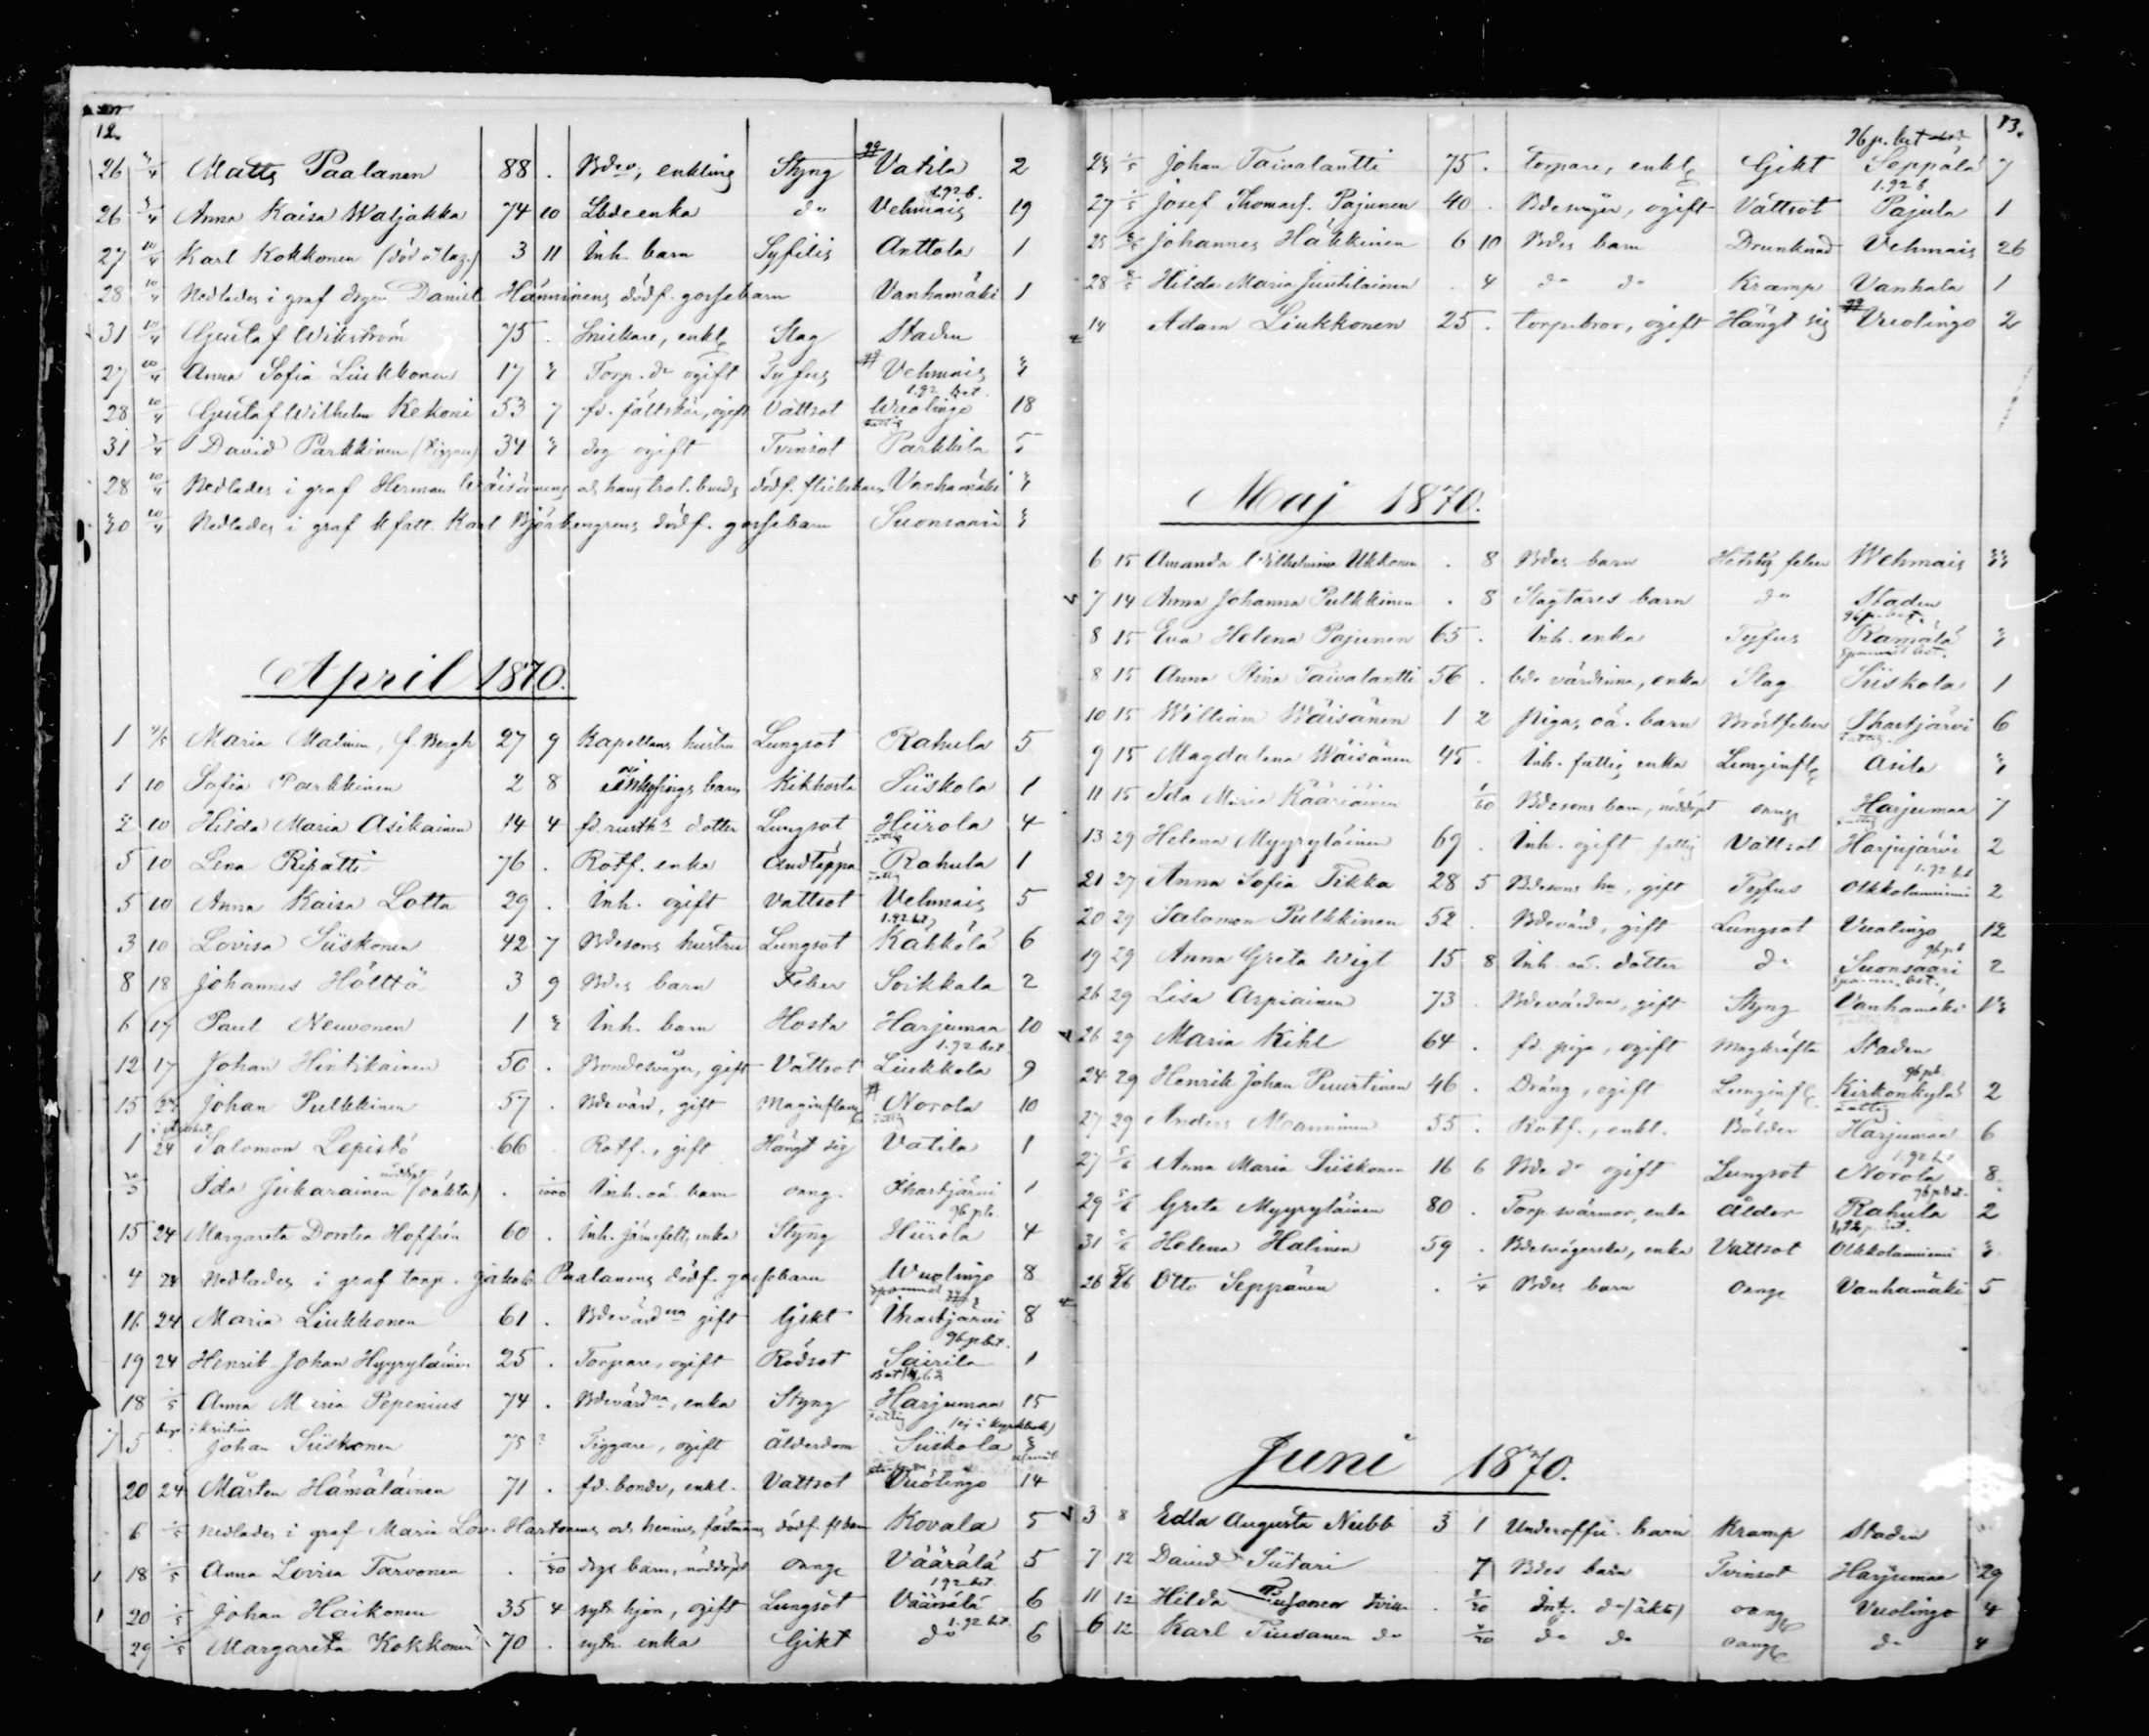 12.
26 3/4 Matts Paalanen 88 . Bdev, enkling Styng Vatila 2
26 3/4 Anna Kaisa Waljakka 74 10 Lbdeenka do Vehmais 19
27 10/4 Karl Kokkonen 3 11 Inh. barn Syfilis Anttola 1
28 10/4 Nedlades i graf drgen Daniel Hänninens dödf. gossebarn Vanhamäki 1
31 10/4 Gustaf Wikström 75 . Snickare, enkl Slag Staden
27 10/4 Anna Sofia Liukkonen 17 Torp. dr ogift Tyfus Vehmais
1.92 bet.
28 10/4 Gustaf Wilhelm Kekoni 53 7 fd. fältskär, ogift Vattsot Wuolingo 18
31 David Parkkinen 34 drg ogift Tvinsot Parkkila 5
28 10/4 Nedlades i graf Herman Wäisänens och hans trol. bruds dödf. flickebarn Vanhamäki
30 10/4 Nedlades i graf Karl Björkengrens dödf. gossebarn Suonsaari
April 1870.
1 Maria Malinen, f. Bergh 27 9 Kapellans hustru Lungsot Rahula 5
1 10 Sofia Parkkinen 2 8 barn Kikhosta Siiskola 1
2 10 Hilda Maria Asikainen 14 4 fd. rusth dotter Lungsot Hiirola 4
5 10 Lena Ripatti 76 . Rotf. enka Andtäppa Rahula 1
5 10 Anna Kaisa Lotta 29 . Inh. ogift Vattsot Vehmais 5
1.92 bet
3 10 Lovisa Siiskonen 42 7 Bdesons hustru Lungsot Käkkölä 6
8 18 Johannes Hölttö 3 9 Bdes barn Feber Soikkala 2
6 17 Paul Neuvonen 1 Inh. barn Hosta Harjumaa 10
1.92 bet.
12 17 Johan Hintikainen 50 . Bondesväger, gift Vattsot Liukkola 9
15 24 Johan Pulkkinen 57 . Bdevärd, gift Maginflam Norola 10
1 24 Salomon Lepistö 66 Rotf., gift Hängt sig Vatila 1
Ida Jukarainen (oäkta) . Inh. oä. barn oang. Ihastjärvi 1
96 pb.
15 24 Margareta Dorotea Hoffrén 60 . enka Styng Hiirola 4
4 24 Nedlades i graf torp. Jakob Paalanens dödf. gossebarn Wuolingo 8
16 24 Maria Liukkonen 61 . Bdevärdnna gift Gikt Ihastjärvi 8
96 p bet.
19 24 Henrik Johan Hyyryläinen 25 . Torpare, ogift Rödsot Sairila 1
18 1/5 Anna Maria Pepenius 74 . Bdevärdna, enka Styng Harjumaa 15
7 5 Johan Siiskonen 75 Tiggare, ogift Ålderdom Siiskola
20 24 Mårten Hämäläinen 71 . fd. bonde, enkl. Vattsot Vuolingo 14
6 1/5 Nedlades i graf Maria Lov. Hartonens och hennes fästmans dödf. barn Kovala 5
1 18 1/5 Anna Lovisa Tarvonen . drgs barn, nöddöpt oang Väärälä 5
1.92 bet.
1 20 1/5 Johan Haikonen 35 4 sytn. hjon, ogift Lungsot Väärälä 6
1.92 bet.
29 1/5 Margareta Kokkonen 70 . sytn. enka Gikt do 6
13.
96 p. bet
1/5 Johan Taivalantti 75 . torpare, enkl Gikt Seppälä 7
1.92 b
27 1/5 Josef Thomasf. Pajunen 40 . Bdesväger, ogift Vattsot Pajula 1
25 Johannes Häkkinen 6 10 Bdes barn Drunknad Vehmais 26
28 Hilda Maria Juutilainen . 4 do do Kramp Vanhala 1
14 Adam Liukkonen 25 . torp.bror, ogift Hängt sig Vuolingo 2
Maj 1870.
6 15 Amanda Wilhelmina Ukkonen . 8 Bdes barn Hetsig feber Wehmais
7 14 Anna Johanna Pulkkinen . 8 Slagtares barn do Staden
96 p. bet.
8 15 Eva Helena Pajunen 65 . Inh. enka Tyfus Ramälä
8 15 Anna Stina Taivalantti 56 . bde värdinna, enka Slag Siiskola 1
10 15 William Wäisänen 1 2 Pigas oä. barn Bröstfeber Ihastjärvi 6
9 15 Magdalena Wäisänen 45 Inh. fattig enka Lunginfl Asila
11 15 Ida Maria Kääriäinen 1/20 Bdesons barn, nöddöpt oang Harjumaa 7
13 29 Helena Myyryläinen 69 . Inh. ogift fattig Vattsot Harjujärvi 2
1.92 bet
21 27 Anna Sofia Tikka 28 5 Bdesons hu, gift Tyfus Olkkolanniemi 2
20 29 Salomon Pulkkinen 52 . Bdevärd, gift Lungsot Vuolingo 12
96 p b
19 29 Anna Greta Wigt 15 8 Inh. oä. dotter do Suonsaari 2
26 29 Lisa Arpiainen 73 . Bdevärdna, gift Styng Vanhamäki
26 29 Maria Kihl 64 . fd. piga, ogift Magkräfta Staden
96 pb.
24 29 Henrik Johan Puurtinen 46 . Dräng, ogift Lunginfl Kirkonkylä 2
27 29 Anders Manninen 55 . Rotf., enkl. Bölder Harjumaa 6
1.92 b.
27 5/6 Anna Maria Siiskonen 16 6 Bde dr ogift Lungsot Norola 8
96 p bet.
29 5/6 Greta Myyryläinen 80 . Torp. svärmor, enka Ålder Rahula 2
31 5/6 Helena Halinen 59 . Bdesvägerska, enka Vattsot Olkkolanniemi
26 5/6 Otto Seppänen . 1/4 Bdes barn oang Vanhamäki 5
Juni 1870.
3 8 Edla Augusta Nubb 3 1 Underoffic. barn Kramp Staden
7 12 David Siitari 7 Bdes barn Tvinsot Harjumaa 29
11 12 Hilda tvill . Inh. do (äkta) oang Vuolingo 4
6 12 Karl Tiusanen do do do oang do 4